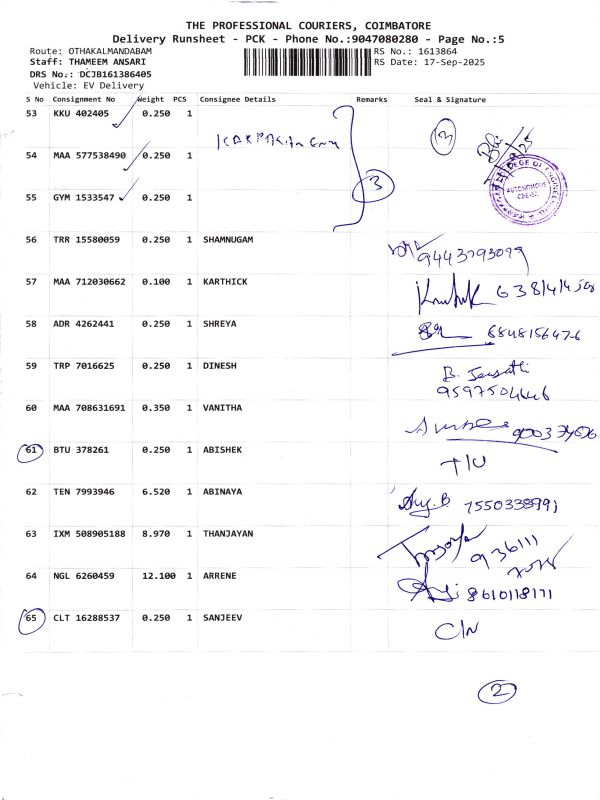 THE PROFESSIONAL COURIERS, COIMBATORE
Delivery Runsheet - PCK - Phone No.:9047080280 - Page No.:5
Route: OTHAKALMANDABAM RS No.: 1613864
Staff: THAMEEM ANSARI RS Date: 17-Sep-2025
DRS No.: DCJB161386405
Vehicle: EV Delivery
S No Consignment No Weight PCS Consignee Details Remarks Seal & Signature
53 KKU 402405 0.250 1
3
54 MAA 577538490 0.250 1
3
AUTONOMOUS
55 GYM 1533547 0.250 1
56 TRR 15580059 0.250 1 SHAMNUGAM
9443793079
57 MAA 712030662 0.100 1 KARTHICK
Karthik
58 ADR 4262441 0.250 1 SHREYA
59 TRP 7016625 0.250 1 DINESH
B.
60 MAA 708631691 0.350 1 VANITHA
61 BTU 378261 0.250 1 ABISHEK
62 TEN 7993946 6.520 1 ABINAYA
7550338991
63 IXM 508905188 8.970 1 THANJAYAN
936111
64 NGL 6260459 12.100 1 ARRENE
8610118171
65 CLT 16288537 0.250 1 SANJEEV
C/N
2